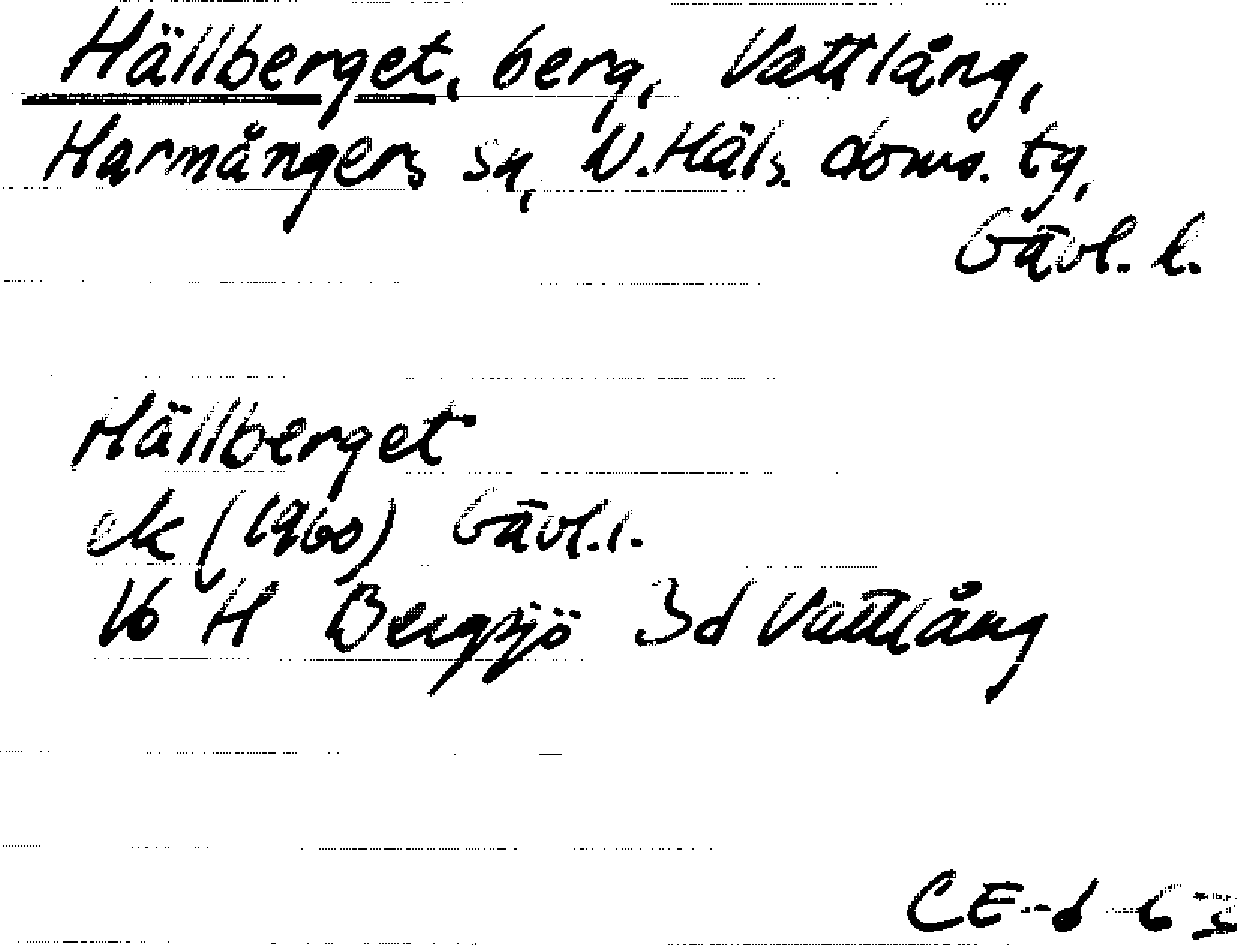 Hällberget, berg, Vattlång,
Harmångers sn, N. Häls. doms. tg,
Gävl. l.
Hällberget
ek (1960) Gävl. l.
16 H Bergsjö 3d Vattlång
CE-d-63